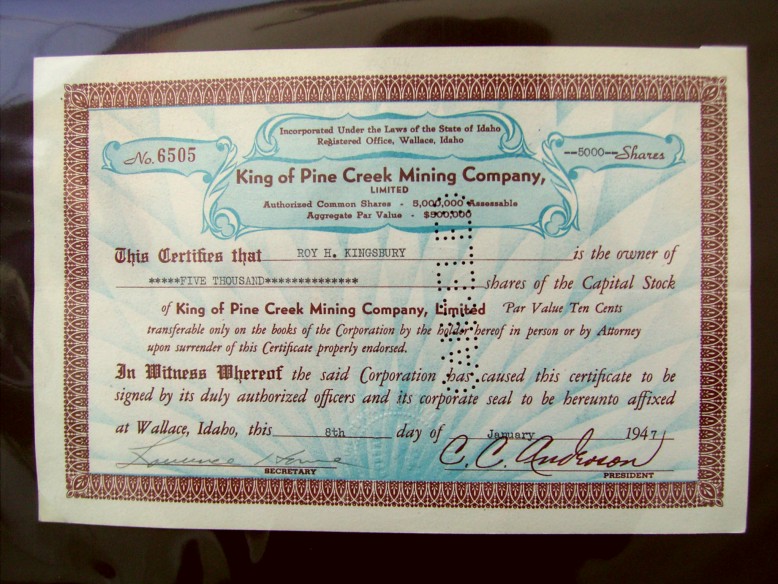 Incorporated Under the Laws of the State of Idaho
Registered Office, Wallace, Idaho
No. 6505
--5000--Shares
King of Pine Creek Mining Company,
LIMITED
Authorized Common Shares - 5,000,000 Assessable
Aggregate Par Value - $500,000
This Certifies that ROY H. KINGSBURY is the owner of
*****FIVE THOUSAND************** shares of the Capital Stock
of King of Pine Creek Mining Company, Limited Par Value Ten Cents
transferable only on the books of the Corporation by the holder hereof in person or by Attorney
upon surrender of this Certificate properly endorsed.
In Witness Whereof the said Corporation has caused this certificate to be
signed by its duly authorized officers and its corporate seal to be hereunto affixed
at Wallace, Idaho, this 8th day of January 1947
C. C. Anderson
SECRETARY
PRESIDENT